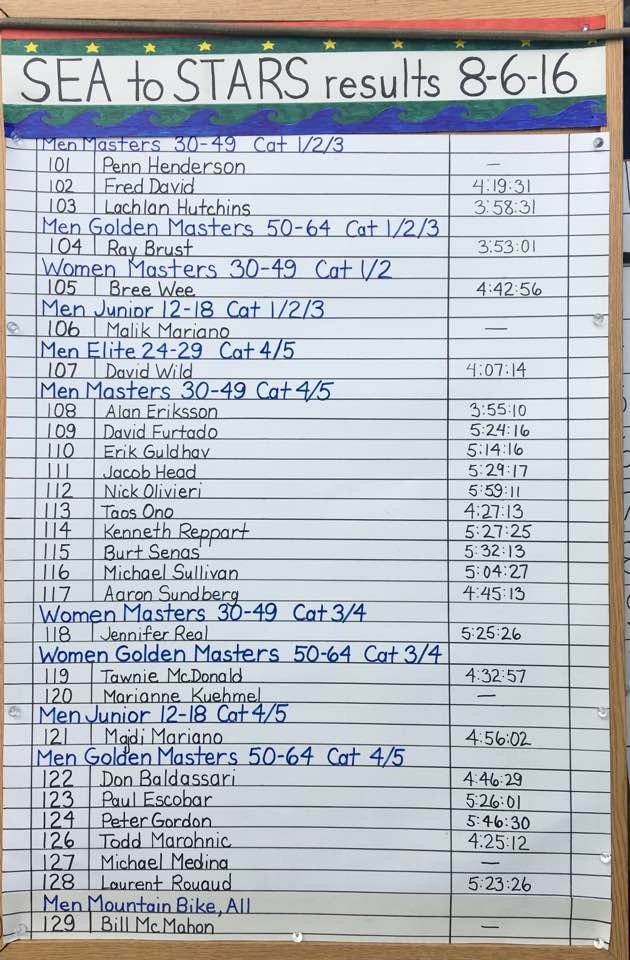 SEA to STARS results 8-6-16
Men Masters 30-49 Cat 1/2/3
101 Penn Henderson —
102 Fred David 4:19:31
103 Lachlan Hutchins 3:58:31
Men Golden Masters 50-64 Cat 1/2/3
104 Ray Brust 3:53:01
Women Masters 30-49 Cat 1/2
105 Bree Wee 4:42:56
Men Junior 12-18 Cat 1/2/3
106 Malik Mariano —
Men Elite 24-29 Cat 4/5
107 David Wild 4:07:14
Men Masters 30-49 Cat 4/5
108 Alan Eriksson 3:55:10
109 David Furtado 5:24:16
110 Erik Guldhav 5:14:16
111 Jacob Head 5:29:17
112 Nick Olivieri 5:59:11
113 Taos Ono 4:27:13
114 Kenneth Reppart 5:27:25
115 Burt Senas 5:32:13
116 Michael Sullivan 5:04:27
117 Aaron Sundberg 4:45:13
Women Masters 30-49 Cat 3/4
118 Jennifer Real 5:25:26
Women Golden Masters 50-64 Cat 3/4
119 Tawnie McDonald 4:32:57
120 Marianne Kuehmel —
Men Junior 12-18 Cat 4/5
121 Majdi Mariano 4:56:02
Men Golden Masters 50-64 Cat 4/5
122 Don Baldassari 4:46:29
123 Paul Escobar 5:26:01
124 Peter Gordon 5:46:30
126 Todd Marohnic 4:25:12
127 Michael Medina —
128 Laurent Rouaud 5:23:26
Men Mountain Bike, All
129 Bill McMahon —